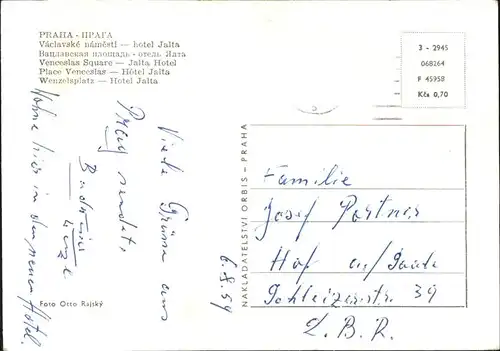 PRAHA - ПРАГА
Václavské náměstí — hotel Jalta
Вацлавская площадь - отель Ялта
Venceslas Square — Jalta Hotel
Place Venceslas — Hôtel Jalta
Wenzelsplatz — Hotel Jalta
3 - 2945
068264
F 45958
Kčs 0,70
Viele Grüsse aus
Prag sendet
Wohne hier in dem neuen Hotel.
6.8.59
NAKLADATELSTVÍ ORBIS — PRAHA
Familie
Josef Portner
Hof a/Saale
Schleizerstr. 39
D.B.R.
Foto Otto Rajský